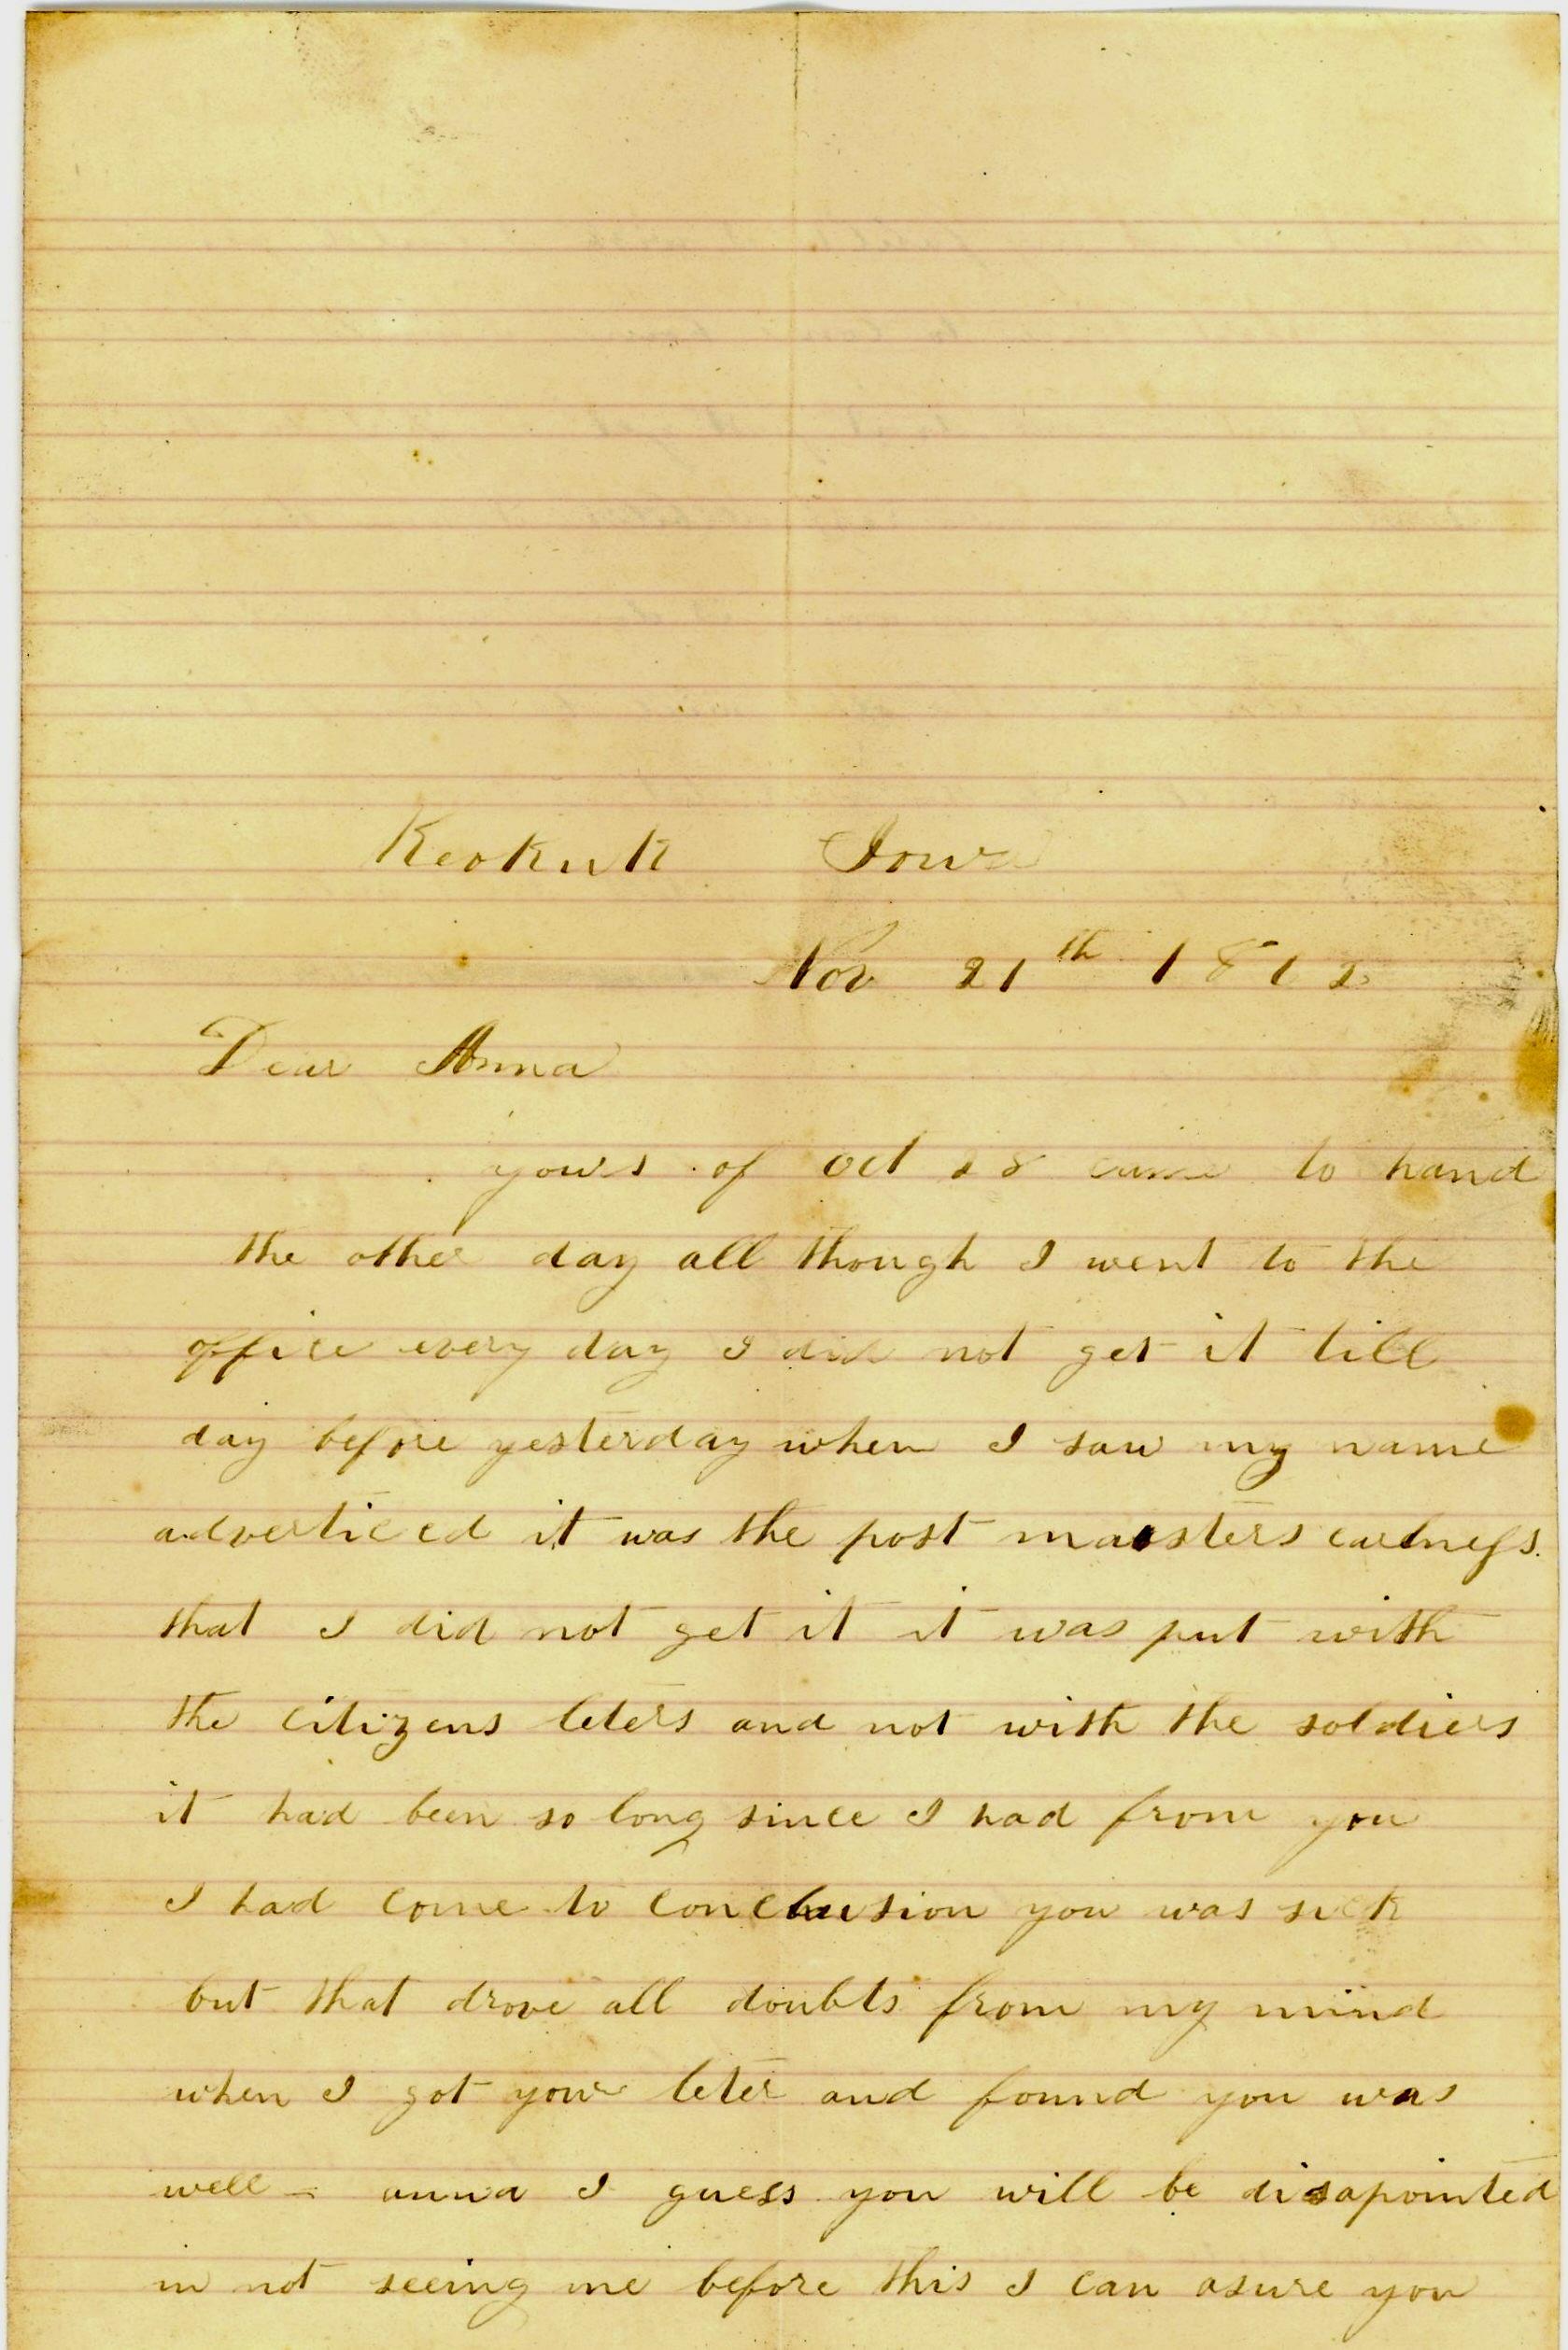 Keokuk Iowa
Nov 21th 1862
Dear Anna
yours of Oct 28 came to hand
the other day all though I went to the
office every day I did not get it till
day before yesterday when I saw my name
adverticed it was the post masters carlness
that I did not get it it was put with
the citizens leters and not with the soldiers
it had been so long since I had from you
I had come to conclusion you was sick
but that drove all doubts from my mind
when I got your leter and found you was
well - anna I guess you will be disapointed
in not seeing me before this I can asure you